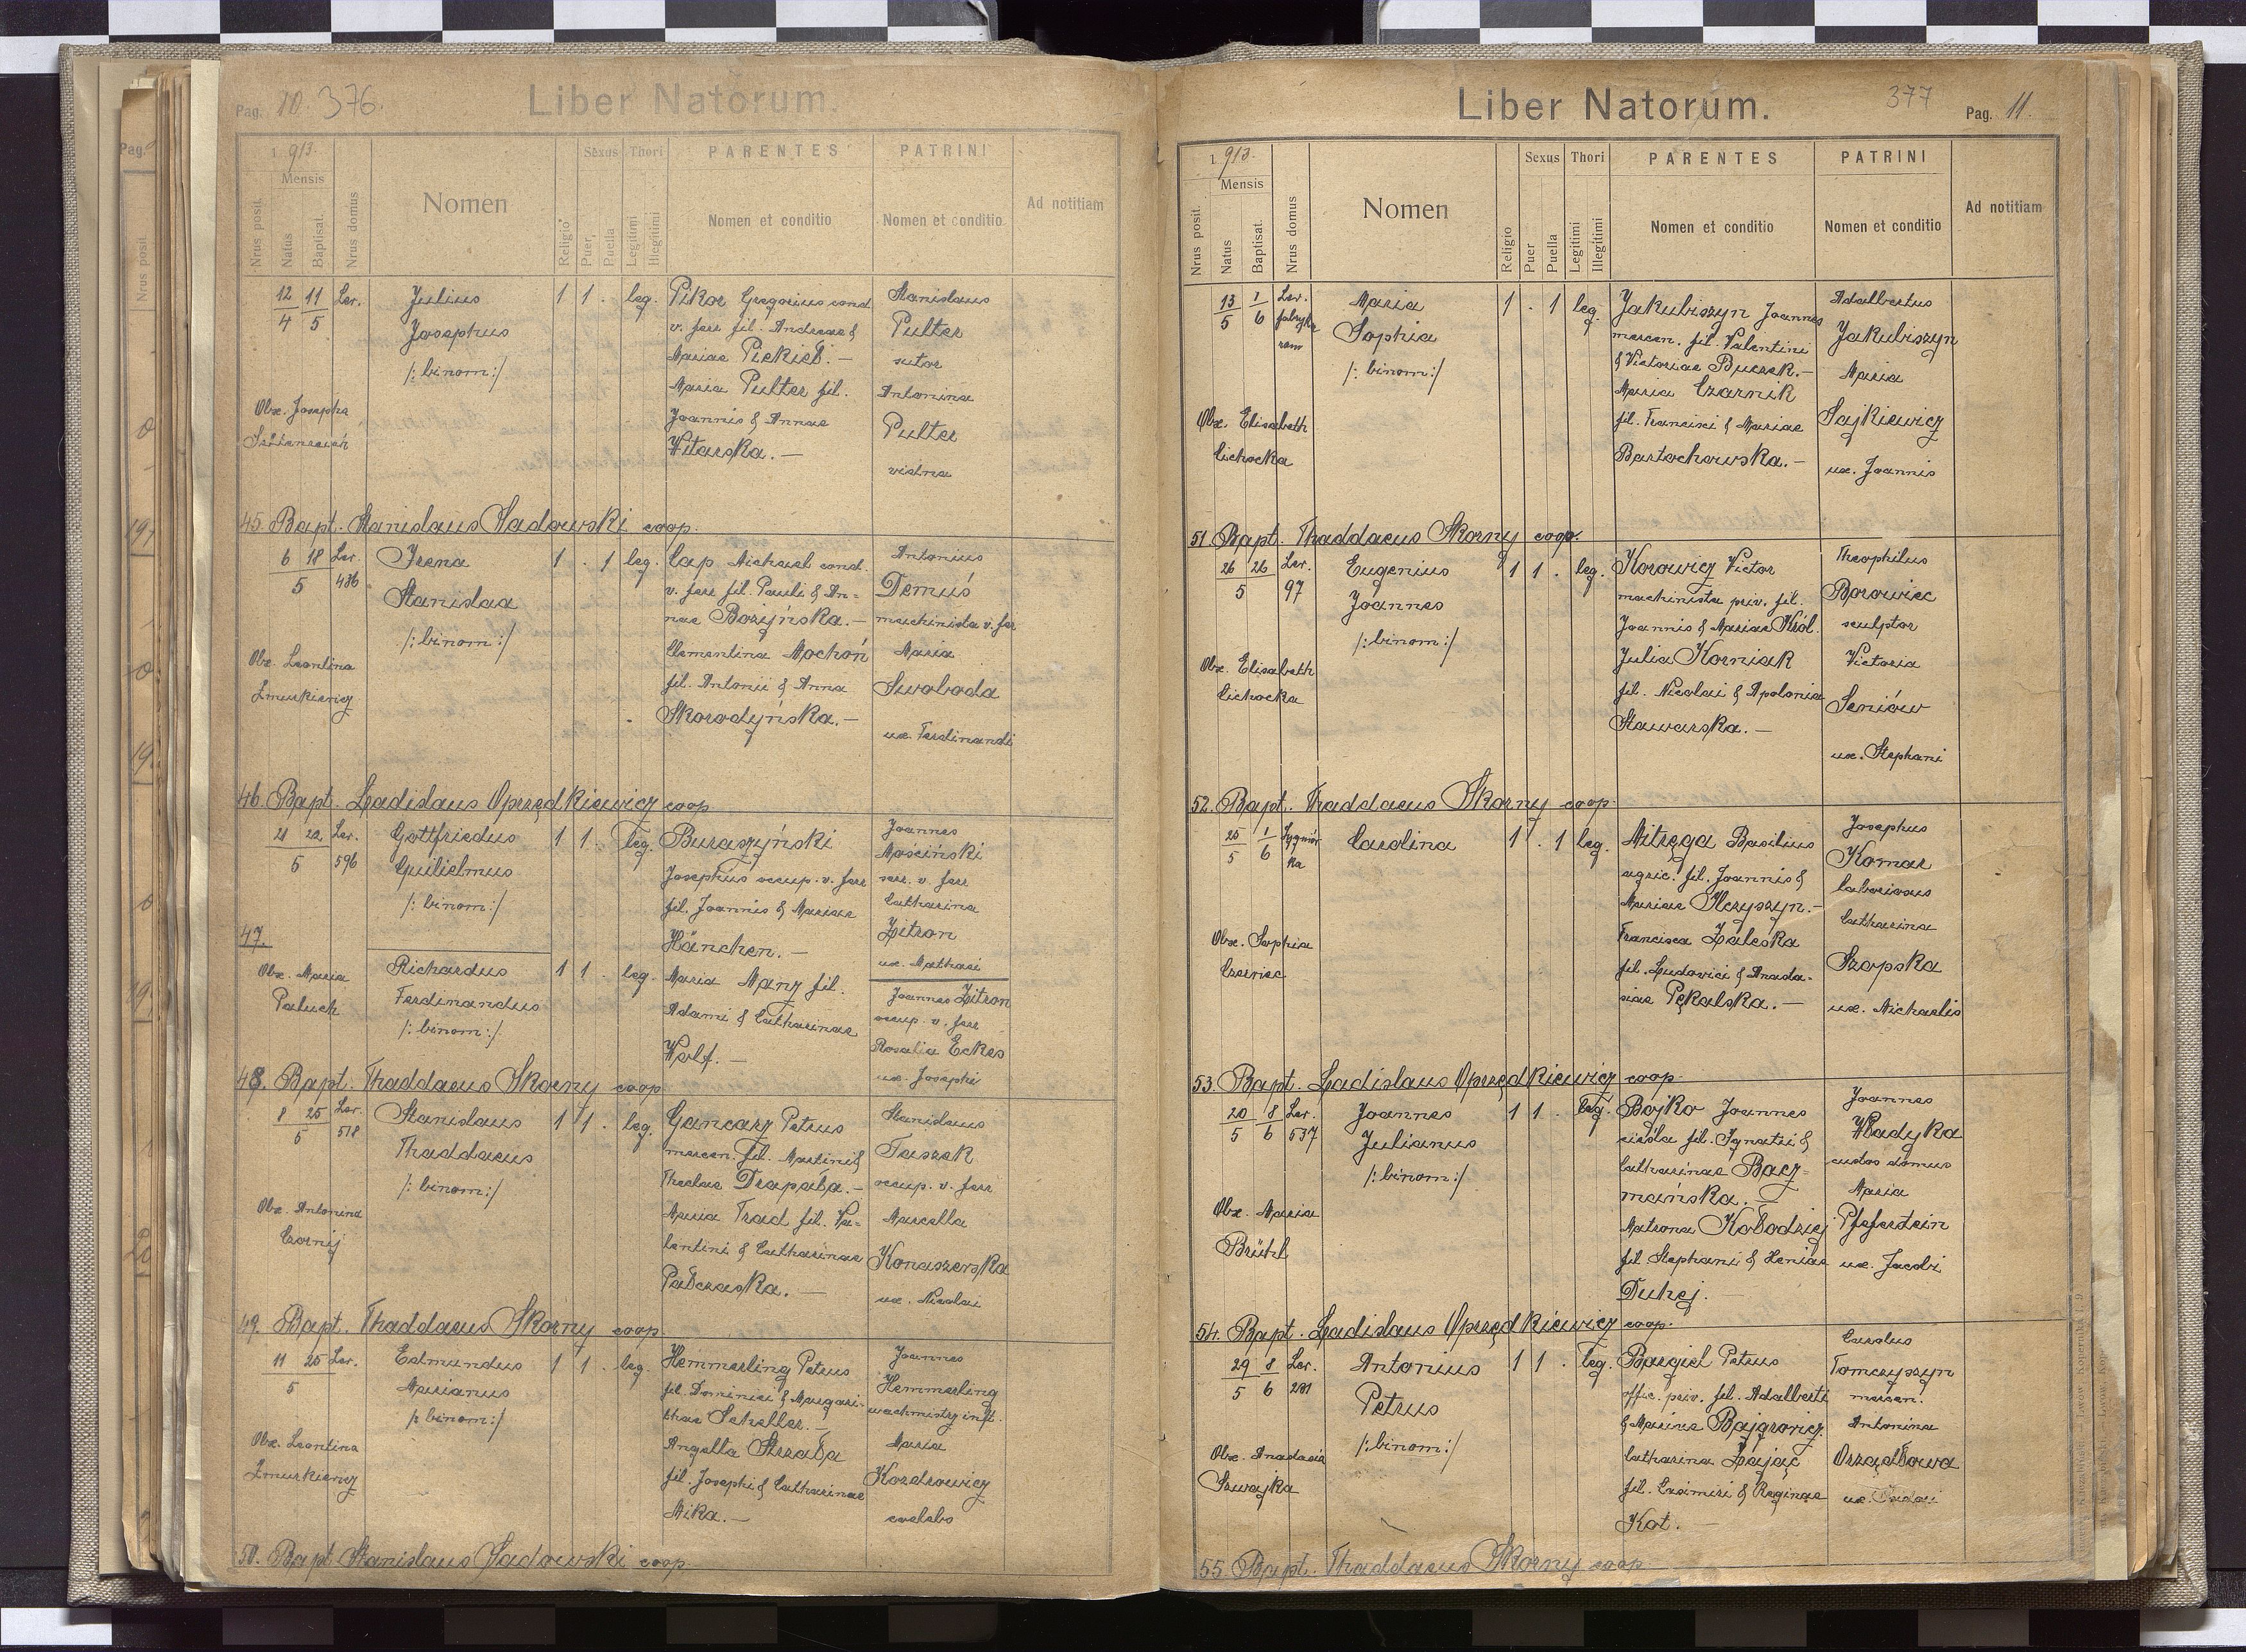 Pag. 10. 376.
Liber Natorum.
1913.
Mensis
Nrus posit.
Natus
Baptisat.
Nrus domus
Nomen
Religio
Sexus
Puer,
Puella
Thori
Legitimi
Illegitimi
PARENTES
Nomen et conditio
PATRINI
Nomen et conditio
Ad notitiam
12/4 11/5 Ler.
Julius
Josephus
/: binom :/
1 1 . leg.
Pikor Gregorius cond.
v. ferr fil. Andreae &
Mariae Piekiel. —
Maria Pulter fil.
Joannis & Annae
Witarska. —
Stanislaus
Pulter
sutor
Antonina
Pulter
vidua
Obx. Josepha
45. Bapt. Stanislaus Sadowski coop.
6 18 Ler.
5 436
Irena
Stanislaa
/: binom :/
1 . 1 leg.
Cap Michael cond.
v. ferr fil. Pauli & An=
nae Bożyńska. —
Clementina Mochoń
fil. Antonii & Anna
Skorodyńska. —
Antonius
Demuś
machinista v. ferr
Maria
Swoboda
ux. Ferdinandi
Obx. Leontina
Żmurkiewicz
46. Bapt. Ladislaus Oprzędkiewicz coop.
21 22 Ler.
5 596
Gottfriedus
Guilielmus
/: binom :/
1 1 . leg.
Buraszyński
Josephus occup. v. ferr
fil. Joannis & Mariae
Hänchen. —
Maria Manz fil.
Adami & Catharinae
Wolf. —
Joannes
Mościński
serv. v. ferr
Catharina
Zitron
ux. Mathaei
47.
Obx. Maria
Paluch
Richardus
Ferdinandus
/: binom :/
1 1 . leg.
Joannes Zitron
occup. v. ferr
Rosalia Eckes
ux. Josephi
48. Bapt. Thaddaeus Skorny coop.
8 25 Ler.
5 518
Stanislaus
Thaddaeus
/: binom :/
1 1 . leg.
Gancarz Petrus
mercen. fil. Martini &
Theclae Drapała. —
Maria Trad fil. Va=
lentini & Catharinae
Pałczaska. —
Stanislaus
Taszek
occup. v. ferr
Marcella
Konaszerska
ux. Nicolai
Obx. Antonina
Czornij
49. Bapt. Thaddaeus Skorny coop.
11 25 Ler.
5
Edmundus
Marianus
/: binom :/
1 1 . leg.
Hemmerling Petrus
fil. Dominici & Margari-
thae Scheller. —
Angella Strzała
fil. Josephi & Catharinae
Mika. —
Joannes
Hemmerling
wachmistrz inft.
Maria
Kozdrowicz
coelebs
Obx. Leontina
Żmurkiewicz
50. Bapt Stanislaus Sadowski coop.
Liber Natorum.
377
Pag. 11.
1913.
Mensis
Nrus posit.
Natus
Baptisat.
Nrus domus
Nomen
Religio
Sexus
Puer
Puella
Thori
Legitimi
Illegitimi
PARENTES
Nomen et conditio
PATRINI
Nomen et conditio
Ad notitiam
13/5 1/6 Ler.
Maria
Sophia
/: binom :/
1 . 1 leg.
Jakubiszyn Joannes
mercen. fil. Valentini
& Victoriae Buczek. —
Maria Czarnik
fil. Francisci & Mariae
Bartochowska. —
Adalbertus
Jakubiszyn
Maria
Sajkiewicz
ux. Joannis
Obx. Elisabeth
Cichocka
51 Bapt. Thaddaeus Skorny coop.
26 26 Ler.
5 97
Eugenius
Joannes
/: binom :/
1 1 . leg.
Korowicz Victor
machinista priv. fil.
Joannis & Mariae Król.
Julia Korniak
fil. Nicolai & Apolonia
Stawarska. —
Theophilus
Borowiec
sculptor
Victoria
Seniów
ux. Stephani
Obx. Elisabeth
Cichocka
52. Bapt. Thaddaeus Skorny coop.
25/5 1/6
Carolina
1 . 1 leg.
Mitręga Basilius
agric. fil. Joannis &
Mariae Klczyszyn. —
Francisca Zaleska
fil. Ludovici & Anasta-
siae Pękalska. —
Josephus
Komar
laboriosus
Catharina
Szopska
ux. Michaelis
Obx. Sophia
Czerniec
53. Bapt. Ladislaus Oprzędkiewicz coop.
20/5 8/6 Ler. 537
Joannes
Julianus
/: binom :/
1 1 . leg.
Bojko Joannes
cieśla fil. Ignatii &
Catharinae Bacz=
mańska. —
Matrona Kołodziej
fil Stephani & Xeniae
Duhej. —
Joannes
Władyka
custos domus
Maria
Pfeferstein
ux. Jacobi
Obx. Maria
Brühl
54. Bapt. Ladislaus Oprzędkiewicz coop.
29/5 8/6 Ler.
Antonius
Petrus
/: binom :/
1 1 . leg.
Bargiel Petrus
offic. priv. fil. Adalberti
& Mariae Bajgrowicz
Catharina Zając
fil. Casimiri & Reginae
Kot. —
Carolus
Tomczyszyn
mercen.
Antonina
Orządłowa
ux.
Obx. Anastasia
Szwajka
55. Bapt. Thaddaeus Skorny coop.